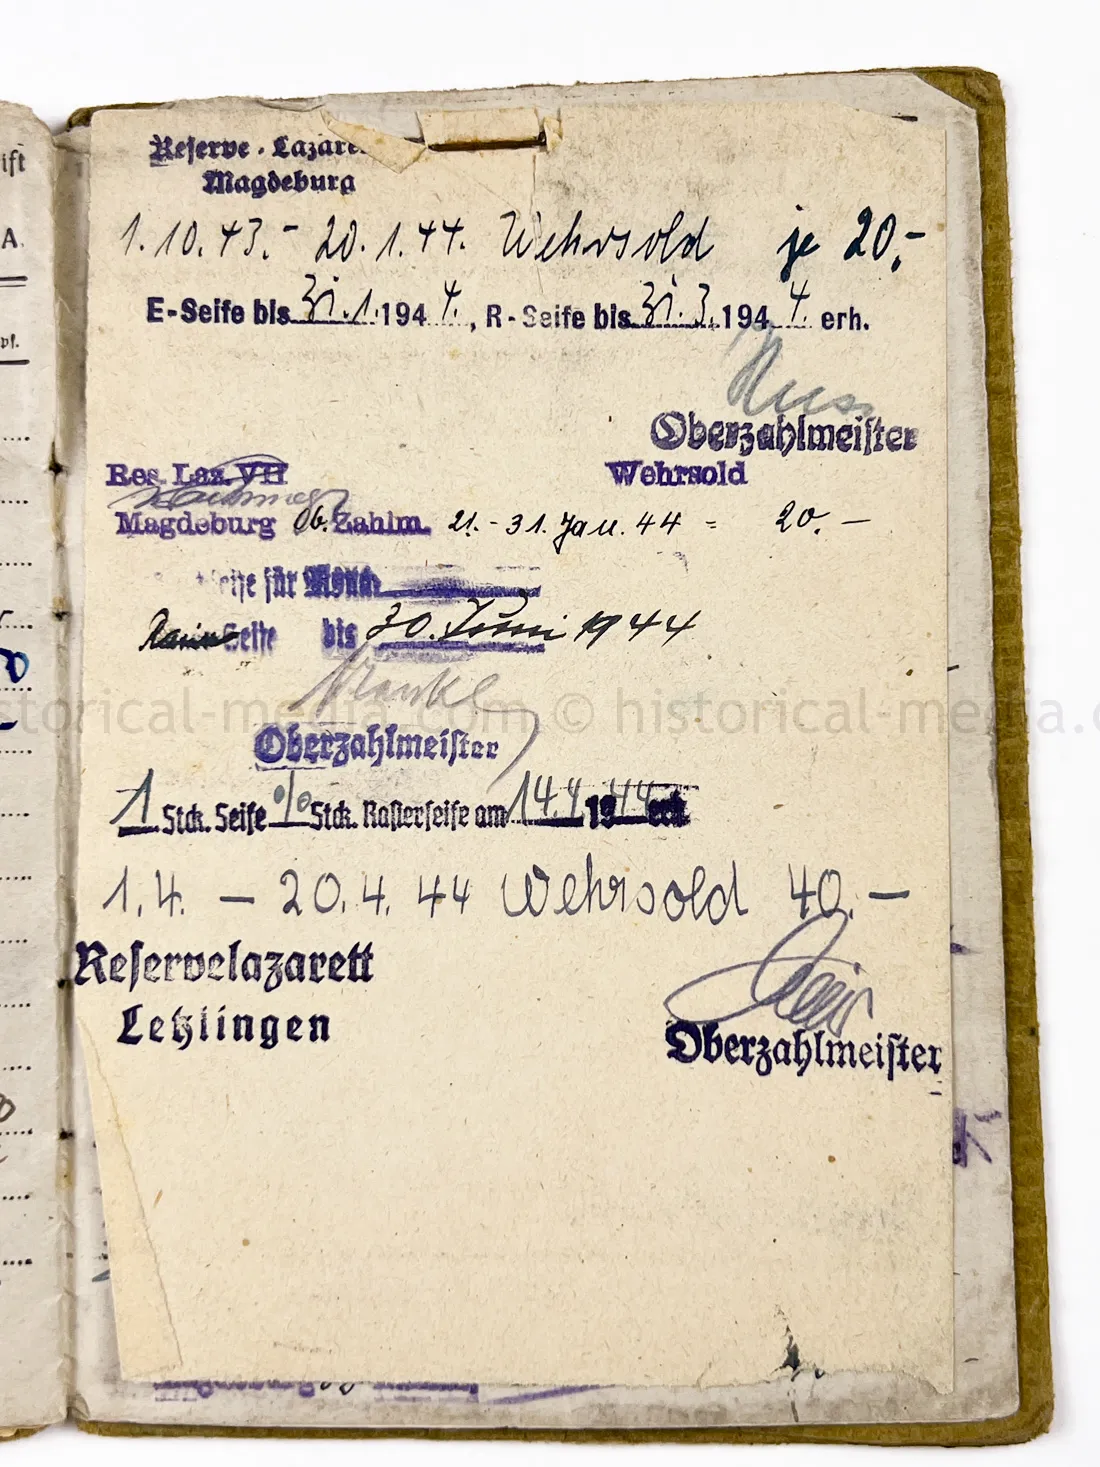 ift
A.
Reserve-Lazare
Magdeburg
1.10.43.- 20.1.44. Wehrsold je 20,-
E-Seife bis 31.1.1944., R-Seife bis 31.3.1944. erh.
Oberzahlmeister
Res. Laz. VII Wehrsold
Magdeburg Ob. Zahlm. 21.-31. Jan. 44 = 20.-
eife für
Seife bis 30. Juni 1944
historical-media.com © historical-media.c
Oberzahlmeister
1 Stck. Seife % Stck. Rasierseife am 14.4.1944 erh
1.4. - 20.4.44 Wehrsold 40.-
Reservelazarett
Letzlingen
Oberzahlmeister